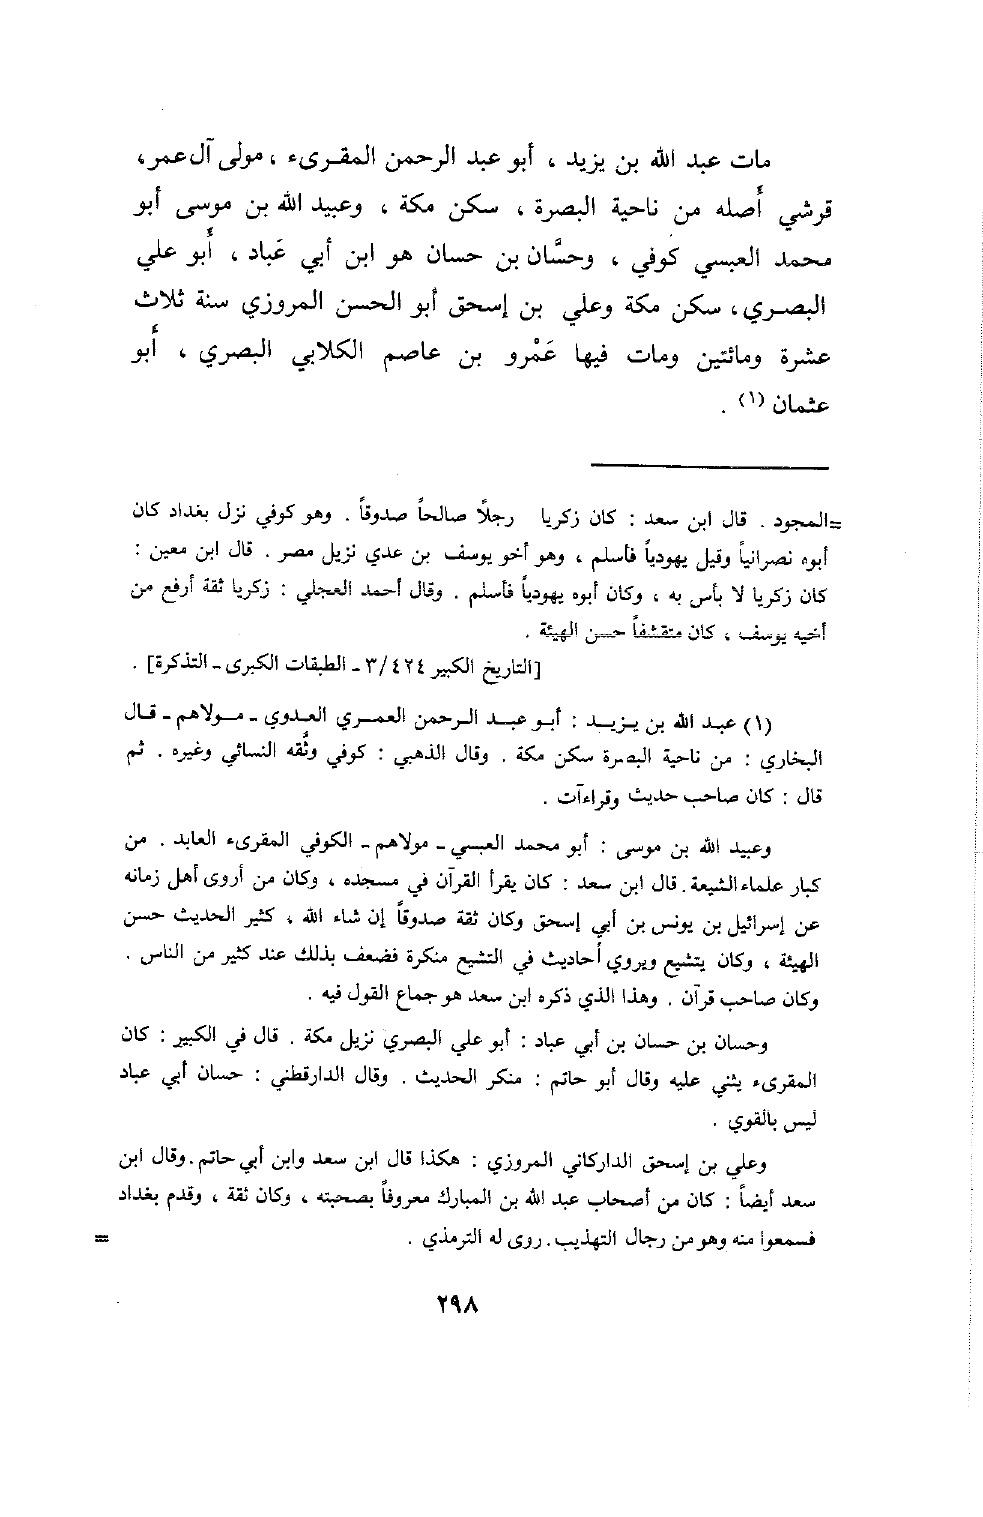 مات عبد الله بن يزيد ، أبو عبد الرحمن المقرىء ، مولى آل عمر،
قرشي أصله من ناحية البصرة ، سكن مكة ، وعبيد الله بن موسى أبو
محمد العبسي كوفي ، وحسَّان بن حسان هو ابن أبي عَباد ، أبو علي
البصري، سكن مكة وعلي بن إسحق أبو الحسن المروزي سنة ثلاث
عشرة ومائتين ومات فيها عَمْرو بن عاصم الكلابي البصري ، أبو
عثمان (١) .
=المجود . قال ابن سعد : كان زكريا رجلًا صالحاً صدوقاً . وهو كوفي نزل بغداد كان
أبوه نصرانياً وقيل يهودياً فأسلم ، وهو أخو يوسف بن عدي نزيل مصر . قال ابن معين :
كان زكريا لا بأس به ، وكان أبوه يهودياً فأسلم . وقال أحمد العجلي : زكريا ثقة أرفع من
أخيه يوسف ، كان متقشفاً حسن الهيئة .
[التاريخ الكبير ٣/٤٢٤ ـ الطبقات الكبرى ـ التذكرة] .
(١) عبد الله بن يزيد : أبو عبد الرحمن العمري العدوي ـ مولاهم ـ قال
البخاري : من ناحية البصرة سكن مكة . وقال الذهبي : كوفي وثَّقه النسائي وغيره . ثم
قال : كان صاحب حديث وقراءآت .
وعبيد الله بن موسى : أبو محمد العبسي ـ مولاهم ـ الكوفي المقرىء العابد . من
كبار علماء الشيعة . قال ابن سعد : كان يقرأ القرآن في مسجده ، وكان من أروى أهل زمانه
عن إسرائيل بن يونس بن أبي إسحق وكان ثقة صدوقاً إن شاء الله ، كثير الحديث حسن
الهيئة ، وكان يتشيع ويروي أحاديث في التشيع منكرة فضعف بذلك عند كثير من الناس .
وكان صاحب قرآن . وهذا الذي ذكره ابن سعد هو جماع القول فيه .
وحسان بن حسان بن أبي عباد : أبو علي البصري نزيل مكة . قال في الكبير : كان
المقرىء يثني عليه وقال أبو حاتم : منكر الحديث . وقال الدارقطني : حسان أبي عباد
ليس بالقوي .
وعلي بن إسحق الداركاني المروزي : هكذا قال ابن سعد وابن أبي حاتم . وقال ابن
سعد أيضاً : كان من أصحاب عبد الله بن المبارك معروفاً بصحبته ، وكان ثقة ، وقدم بغداد
فسمعوا منه وهو من رجال التهذيب . روى له الترمذي . =
٢٩٨